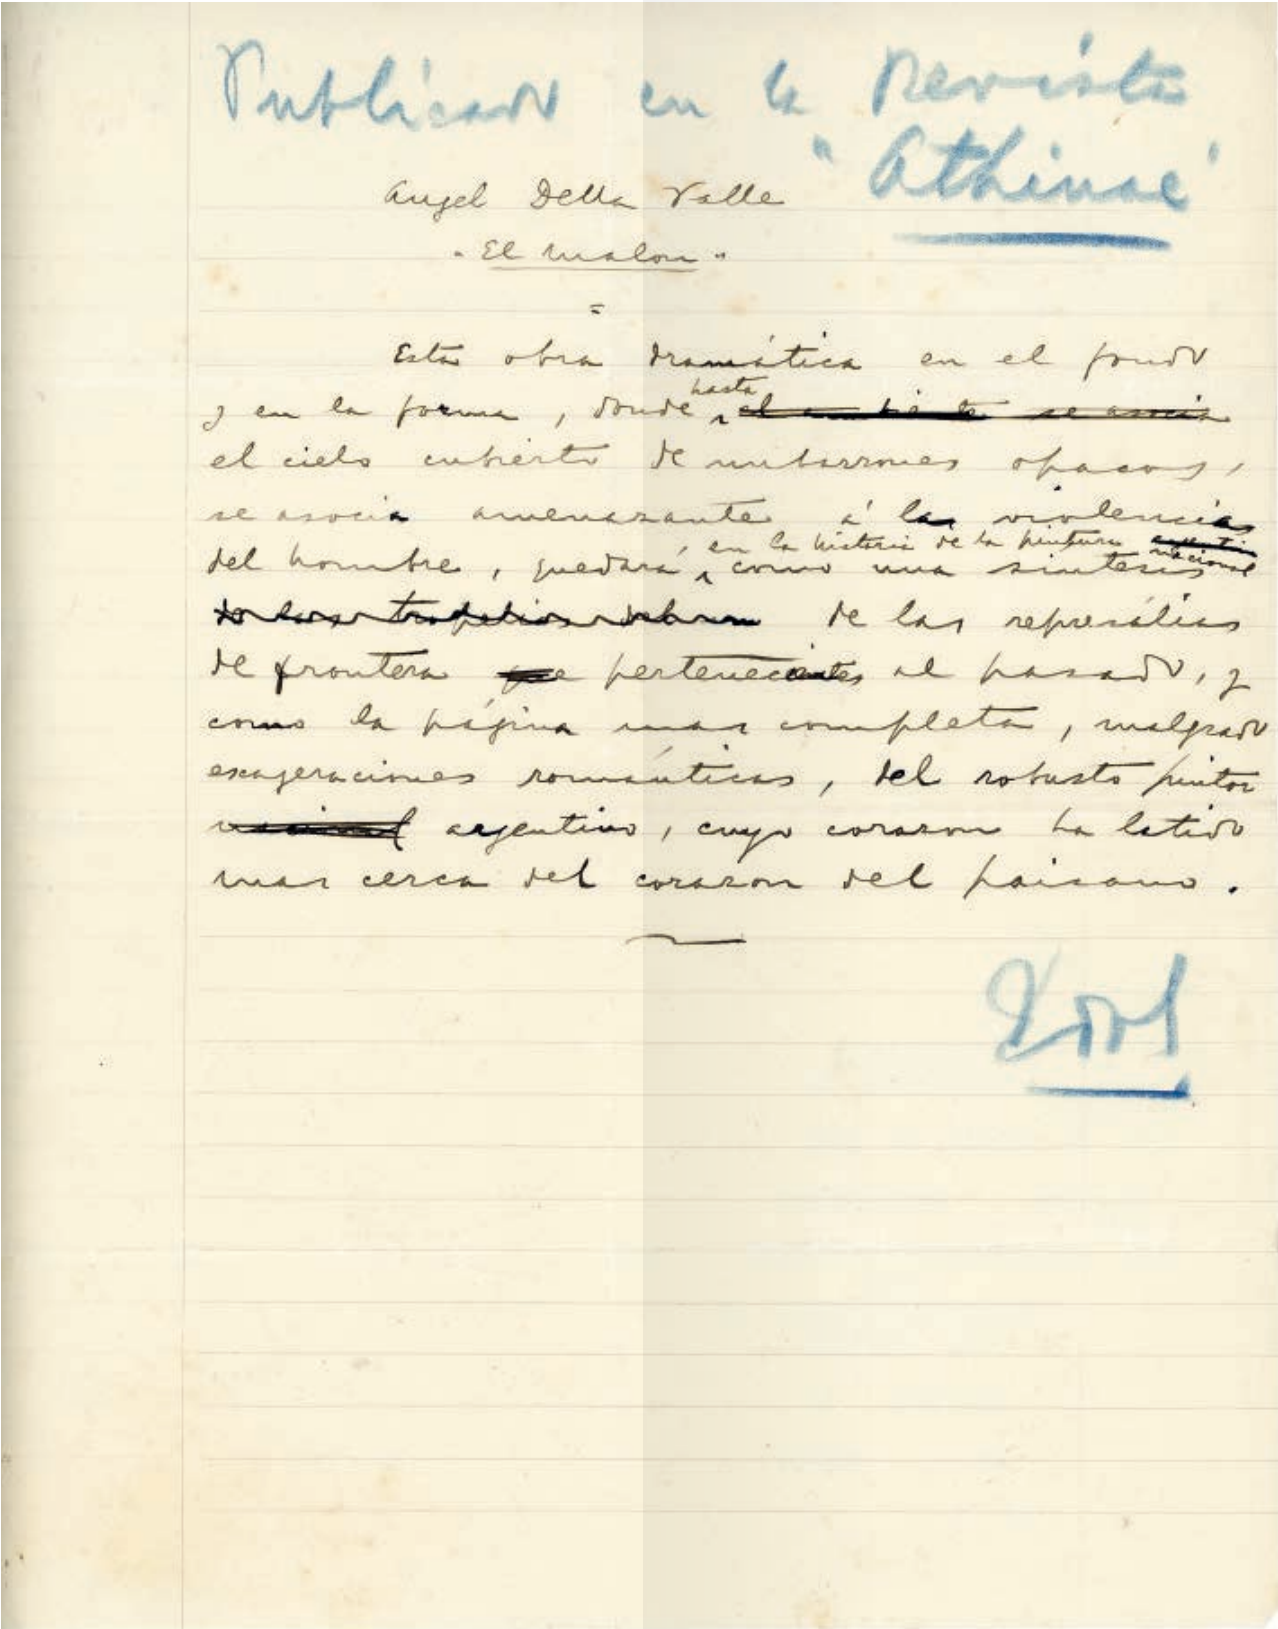 Publicado en la Revista
"Athinae"
Angel Della Valle
"El malon"
=
Esta obra dramática en el fondo
y en la forma, donde hasta el ambiente se asocia
el cielo cubierto de nubarrones opacos,
se asocia amenazante á las violencias
del hombre, quedará en la historia de la pintura nacional como una sintesis
de las represálias
de frontera que pertenecientes al pasado, y
como la página mas completa, malgrado
exageraciones románticas, del robusto pintor
nacional argentino, cuyo corazon ha latido
mas cerca del corazon del paisano.